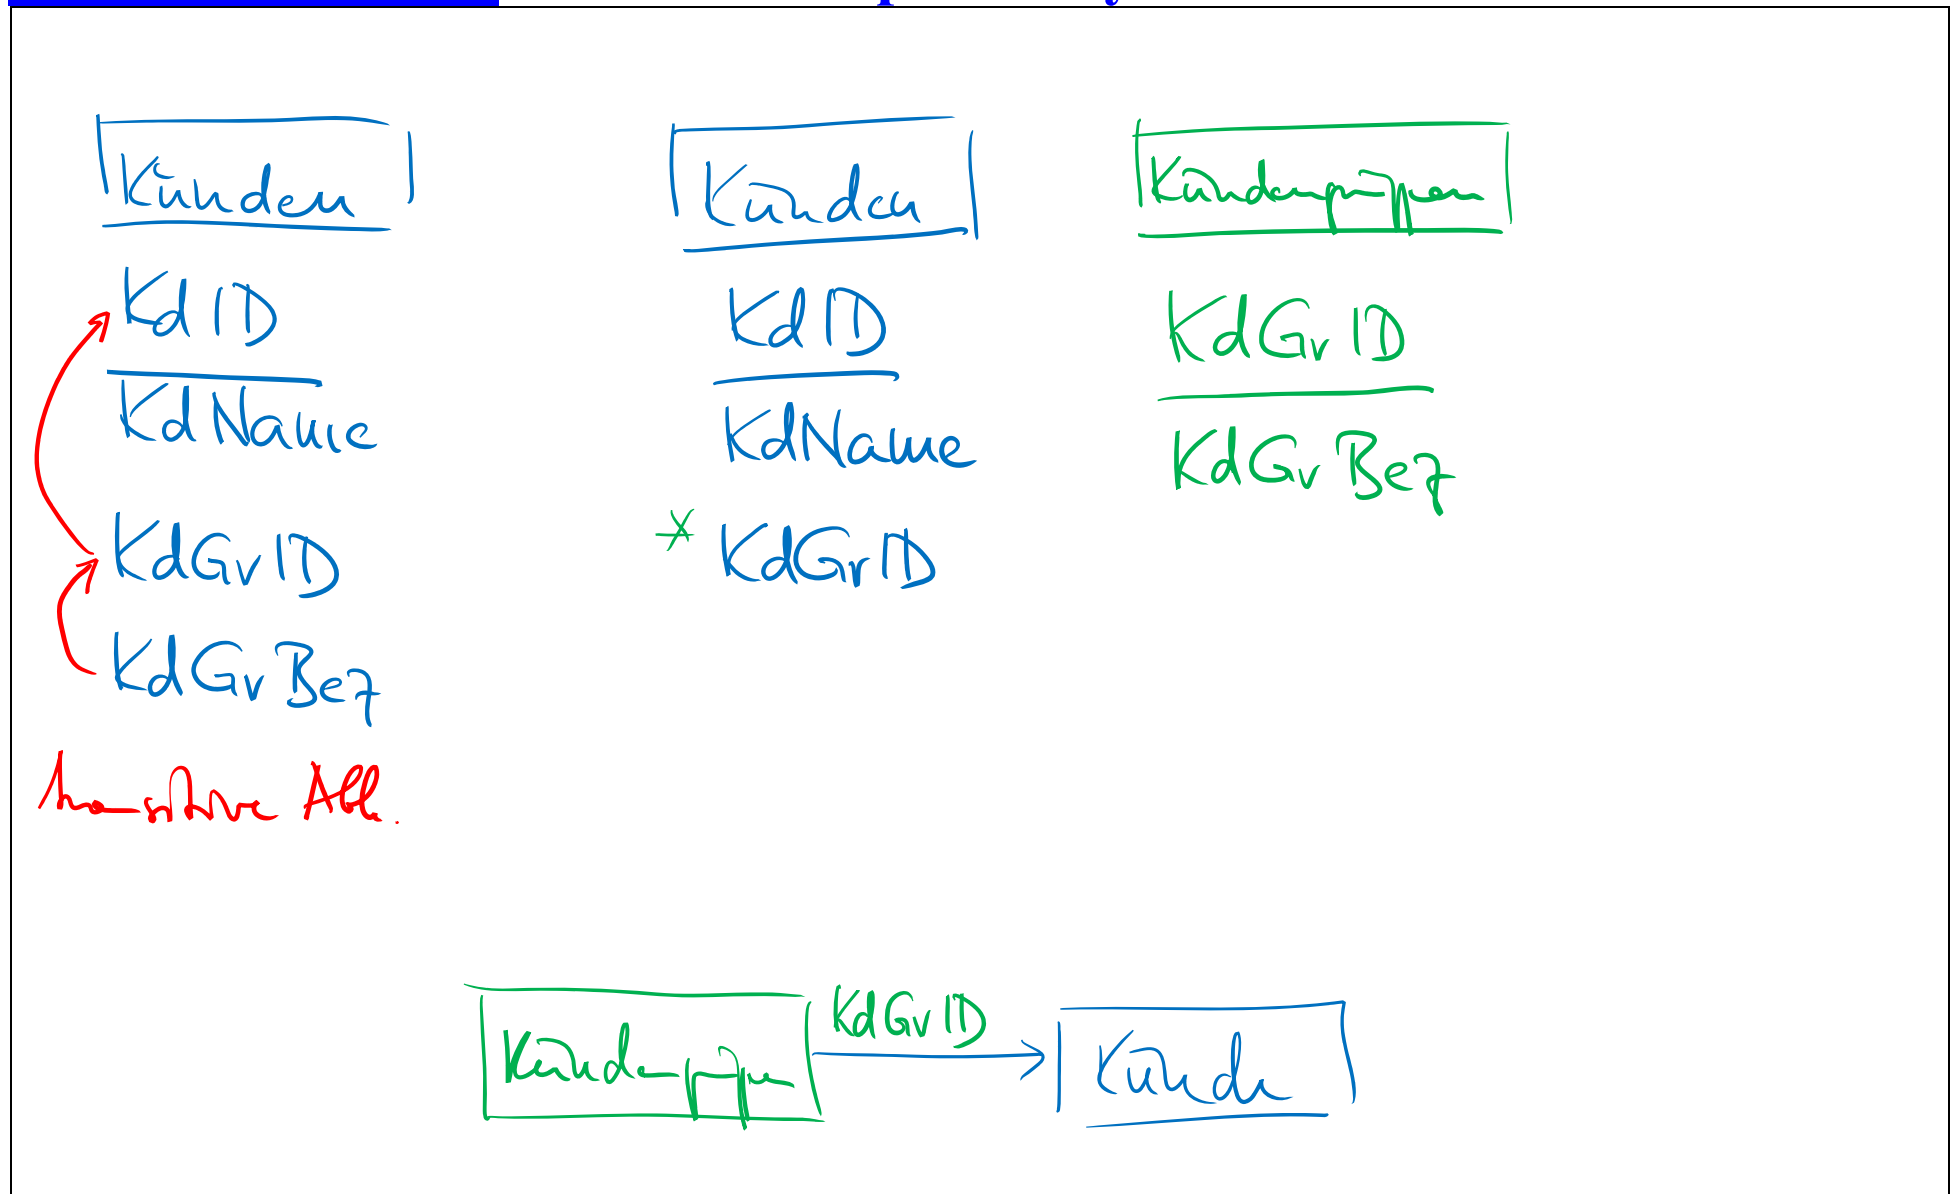 Kunden
KdID
KdName
KdGrID
KdGrBez
transitive Abh.
Kunden
KdID
KdName
* KdGrID
Kundengruppen
KdGrID
KdGrBez
Kundengruppen
KdGrID
Kunde